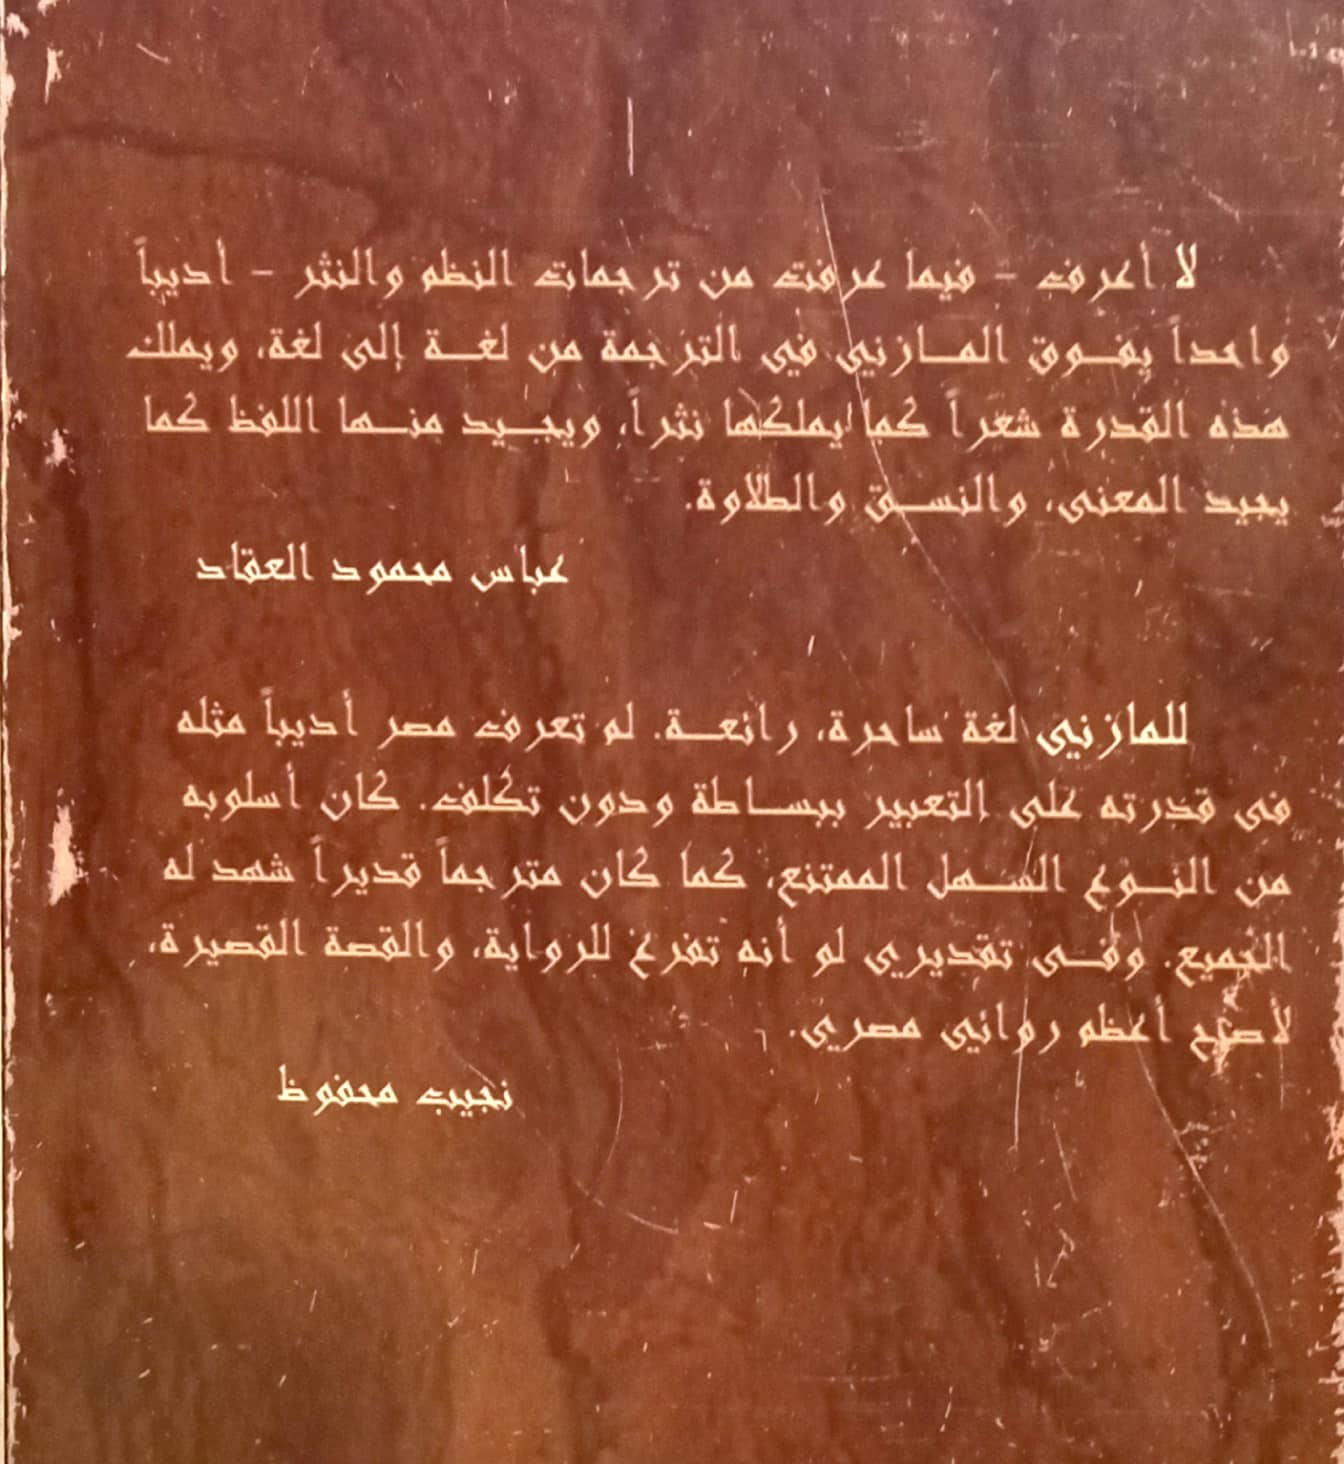 لا أعرف - فيما عرفت من ترجمات النظم والنثر - أديباً
واحداً يفوق المازني في الترجمة من لغة إلى لغة، ويملك
هذه القدرة شعراً كما يملكها نثراً، ويجيد منها اللفظ كما
يجيد المعنى، والنسق والطلاوة.
عباس محمود العقاد
للمازني لغة ساحرة، رائعة. لم تعرف مصر أديباً مثله
فى قدرته على التعبير ببساطة ودون تكلف. كان أسلوبه
من النوع السهل الممتنع، كما كان مترجماً قديراً شهد له
الجميع. وفى تقديري لو أنه تفرغ للرواية، والقصة القصيرة،
لأصبح أعظم روائي مصري.
نجيب محفوظ